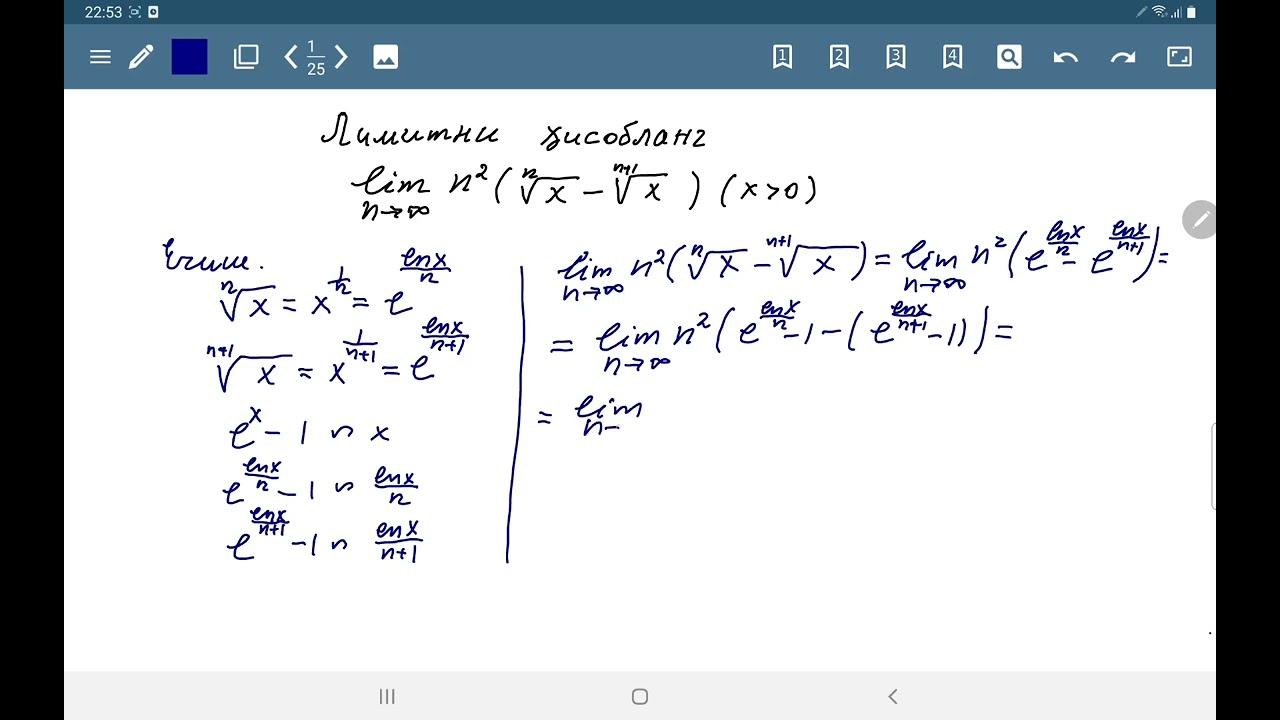 22:53
1
25
1 2 3 4
Лимитни ҳисобланг
lim n→∞ n² ( ⁿ√x − ⁿ⁺¹√x ) (x>0)
Ечиш.
ⁿ√x = x^(1/n) = e^(lnx/n)
ⁿ⁺¹√x = x^(1/(n+1)) = e^(lnx/(n+1))
e^x − 1 ~ x
e^(lnx/n) − 1 ~ lnx/n
e^(lnx/(n+1)) − 1 ~ lnx/(n+1)
lim n→∞ n² ( ⁿ√x − ⁿ⁺¹√x ) = lim n→∞ n² ( e^(lnx/n) − e^(lnx/(n+1)) ) =
= lim n→∞ n² ( e^(lnx/n) − 1 − ( e^(lnx/(n+1)) − 1 ) ) =
= lim n−